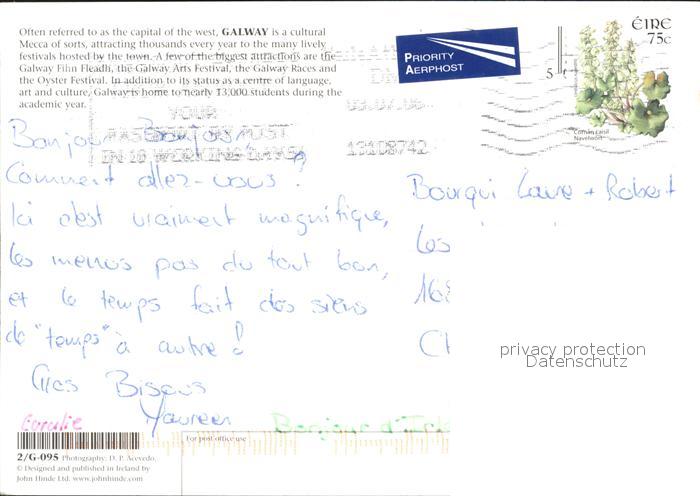 Often referred to as the capital of the west, GALWAY is a cultural
Mecca of sorts, attracting thousands every year to the many lively
festivals hosted by the town. A few of the biggest attractions are the
Galway Film Fleadh, the Galway Arts Festival, the Galway Races and
the Oyster Festival. In addition to its status as a centre of language,
art and culture, Galway is home to nearly 13,000 students during the
academic year.
PRIORITY
AERPHOST
ÉIRE
75c
Cornán caisil
Navelwort
YOUR
PASSPORT MUST
13108742
Bonjour Bonjour
Comment allez-vous ?
Ici c'est vraiment magnifique,
les menus pas du tout bon,
et le temps fait des siens
de "temps" à autre !
Gros Bisous
Maureen
Coralie
Bonjour d'Irl
Bourqui Laure + Robert
Les
168
Ch
privacy protection
Datenschutz
For post office use
2/G-095 Photography: D. P. Acevedo.
© Designed and published in Ireland by
John Hinde Ltd. www.johnhinde.com